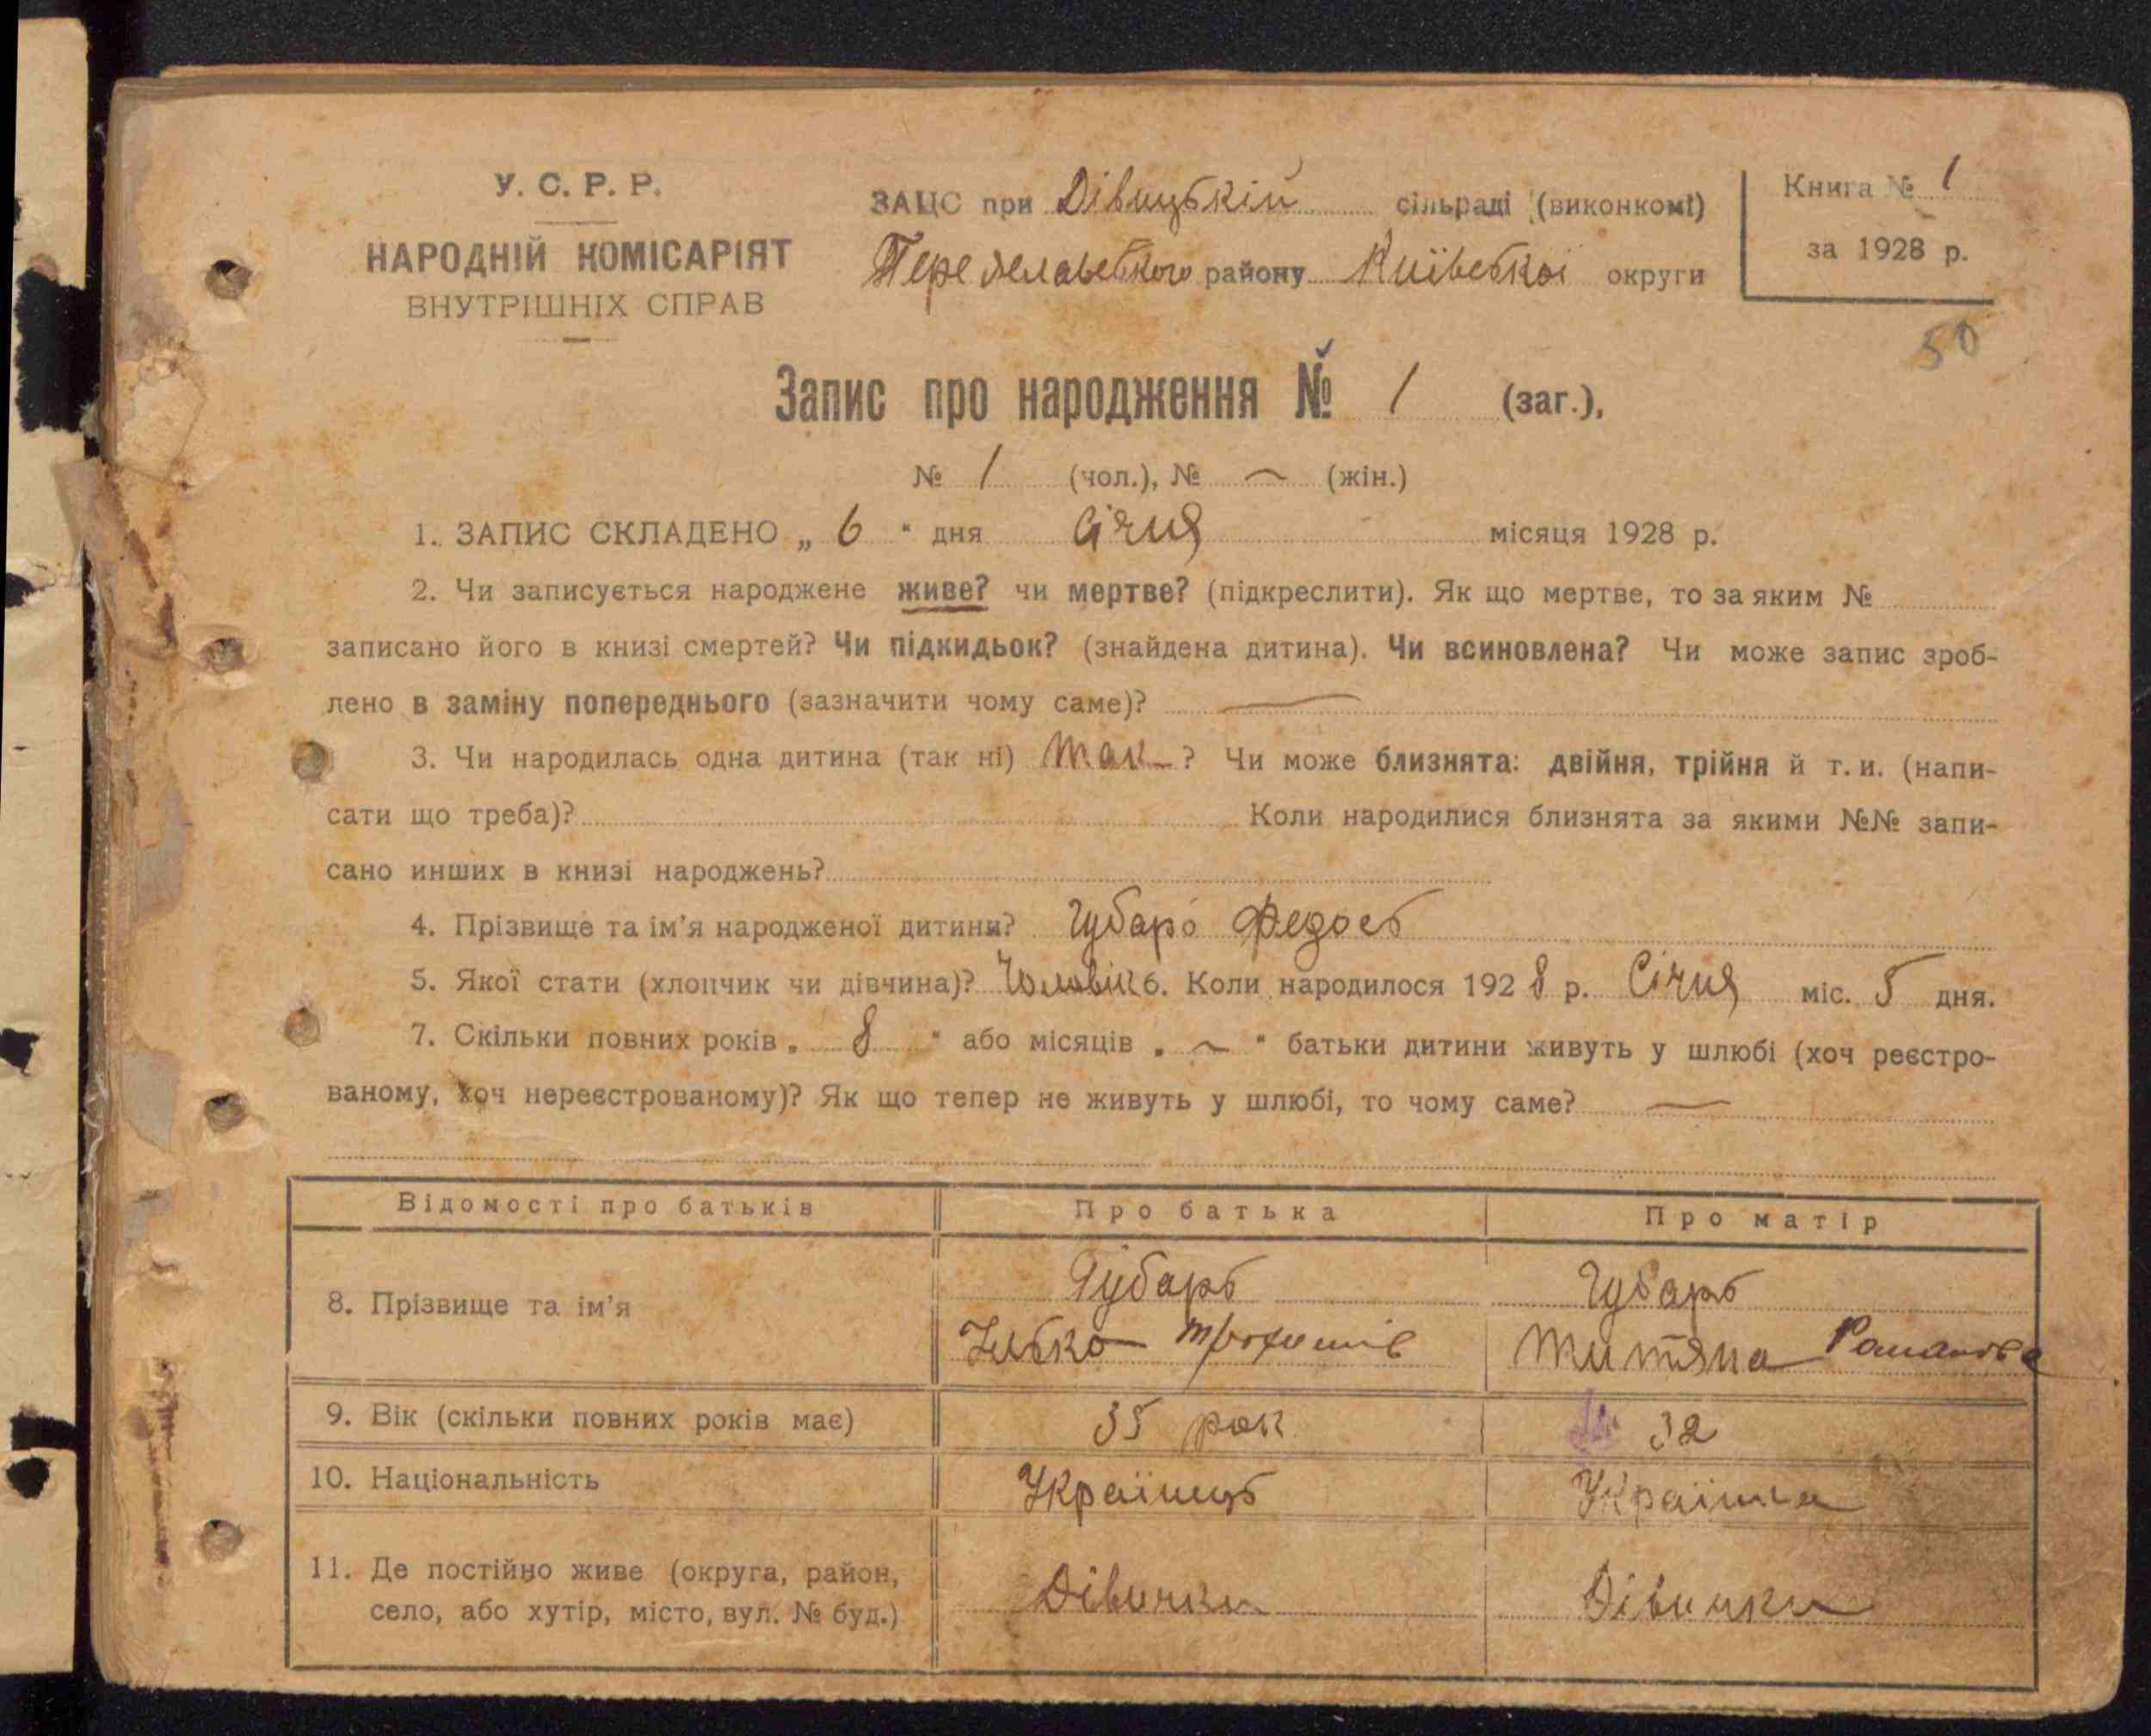 У. С. Р. Р.
НАРОДНІЙ КОМІСАРІЯТ
ВНУТРІШНІХ СПРАВ
ЗАЦС при Дівицькій сільраді (виконкомі)
Переяславського району Київської округи
Книга № 1
за 1928 р.
50
Запис про народження № 1 (заг.),
№ 1 (чол.), № — (жін.)
1. ЗАПИС СКЛАДЕНО „ 6 “ дня Січня місяця 1928 р.
2. Чи записується народжене живе? чи мертве? (підкреслити). Як що мертве, то за яким №
записано його в книзі смертей? Чи підкидьок? (знайдена дитина). Чи всиновлена? Чи може запис зроб-
лено в заміну попереднього (зазначити чому саме)? —
3. Чи народилась одна дитина (так ні) так ? Чи може близнята: двійня, трійня й т. и. (напи-
сати що треба)? Коли народилися близнята за якими №№ запи-
сано инших в книзі народжень?
4. Прізвище та ім’я народженої дитини? Губарь Федось
5. Якої стати (хлопчик чи дівчина)? Чоловік 6. Коли народилося 1928 р. Січня міс. 5 дня.
7. Скільки повних років „ 8 “ або місяців „ — “ батьки дитини живуть у шлюбі (хоч реєстро-
ваному, хоч нереєстрованому)? Як що тепер не живуть у шлюбі, то чому саме? —
Відомості про батьків Про батька Про матір
8. Прізвище та ім’я Губарь Губарь
Ілько Трохимів Титяна Романова
9. Вік (скільки повних років має) 35 рок 32
10. Національність Українць Украінка
11. Де постійно живе (округа, район,
село, або хутір, місто, вул. № буд.) Дівички Дівички